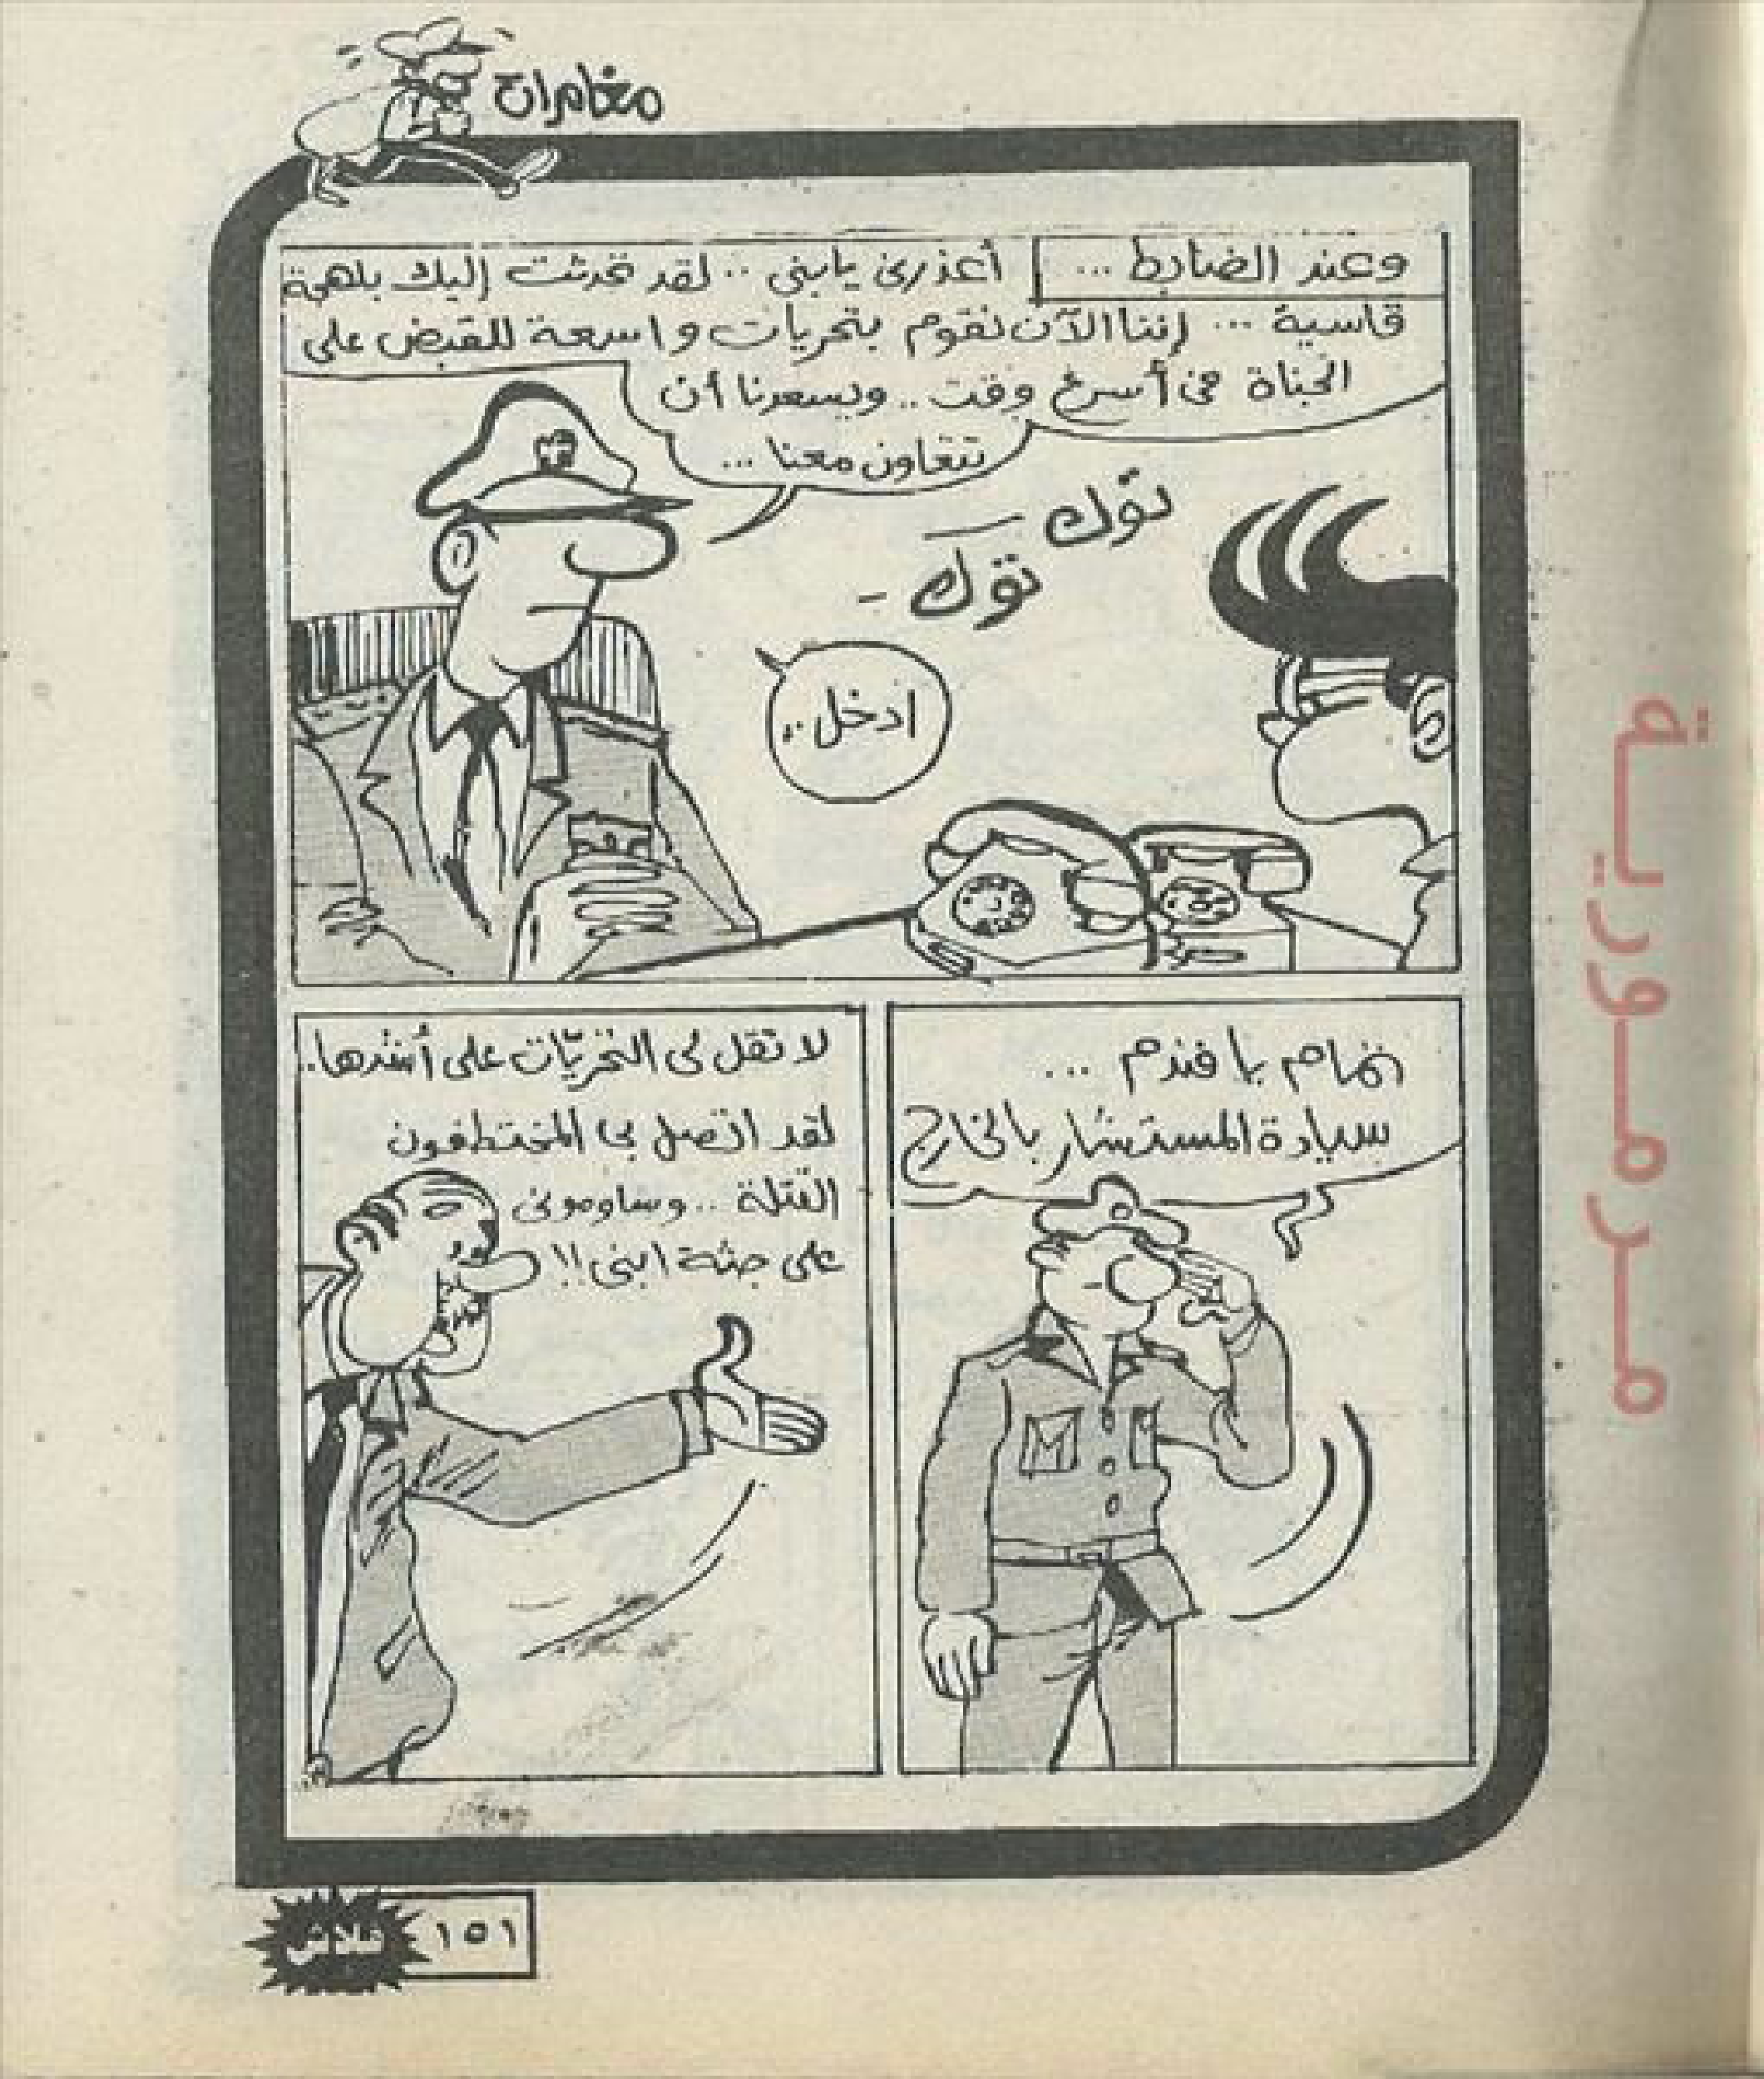 مغامرات
وعند الضابط ...
أعذرنى يابنى .. لقد تحدثت إليك بلهجة
قاسية ... إننا الآن نقوم بتحريات واسعة للقبض على
الجناة فى أسرع وقت .. ويسعدنا أن
تتعاون معنا ...
توك
توك -
ادخل ..
تمام يا فندم ...
سيادة المستشار بالخارج
لا تقل لى التحريّات على أشدها ..
لقد اتصل بى المختطفون
القتلة .. وساومونى
على جثة ابنى !!
فلاش
١٥١
مرمورية